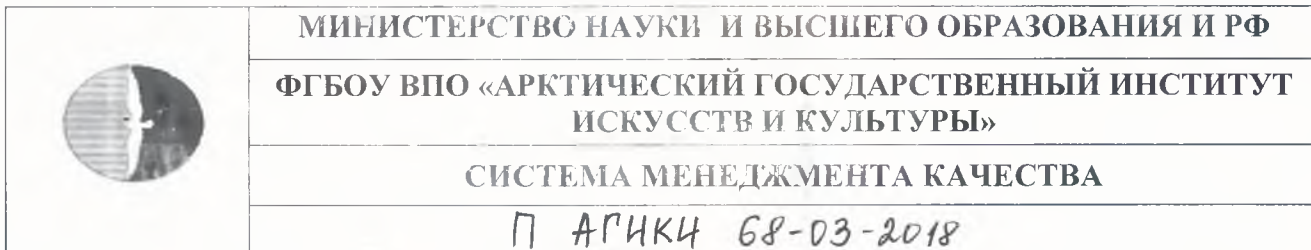 МИНИСТЕРСТВО НАУКИ И ВЫСШЕГО ОБРАЗОВАНИЯ И РФ
ФГБОУ ВПО «АРКТИЧЕСКИЙ ГОСУДАРСТВЕННЫЙ ИНСТИТУТ
ИСКУССТВ И КУЛЬТУРЫ»
СИСТЕМА МЕНЕДЖМЕНТА КАЧЕСТВА
П АГИКИ 68-03-2018